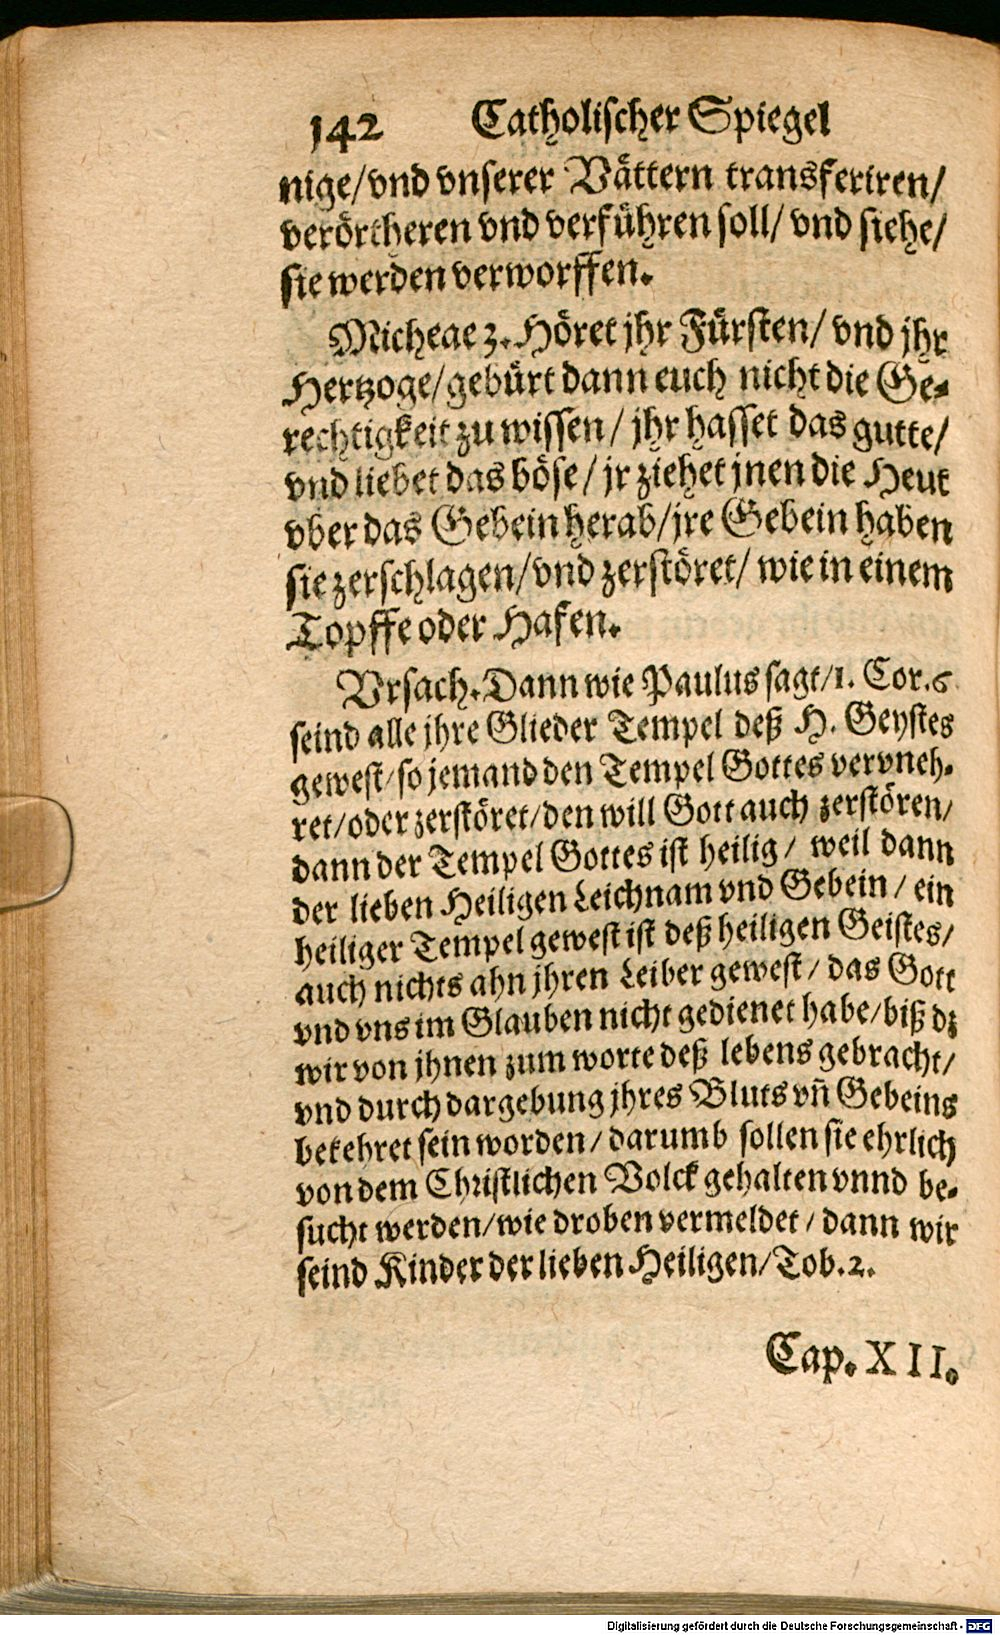 142 Catholischer Spiegel
nige/vnd vnserer Vättern transferiren/
verörtheren vnd verführen soll/ vnd siehe/
sie werden verworffen.
Micheae 3. Höret jhr Fürsten/ vnd jhr
Hertzoge/gebürt dann euch nicht die Ge-
rechtigkeit zu wissen/ jhr hasset das gutte/
vnd liebet das böse/ jr ziehet jnen die Heut
vber das Gebein herab/jre Gebein haben
sie zerschlagen/vnd zerstöret/ wie in einem
Topffe oder Hafen.
Vrsach. Dann wie Paulus sagt/1. Cor.6
seind alle jhre Glieder Tempel deß H. Geystes
gewest/so jemand den Tempel Gottes vervneh-
ret/oder zerstöret/den will Gott auch zerstören/
dann der Tempel Gottes ist heilig/ weil dann
der lieben Heiligen Leichnam vnd Gebein/ ein
heiliger Tempel gewest ist deß heiligen Geistes/
auch nichts ahn jhren Leiber gewest/ das Gott
vnd vns im Glauben nicht gedienet habe/biß dz
wir von jhnen zum worte deß lebens gebracht/
vnd durch dargebung jhres Bluts vn̄ Gebeins
bekehret sein worden/ darumb sollen sie ehrlich
von dem Christlichen Volck gehalten vnnd be-
sucht werden/wie droben vermeldet/ dann wir
seind Kinder der lieben Heiligen/Tob.2.
Cap. XII.
Digitalisierung gefördert durch die Deutsche Forschungsgemeinschaft - DFG